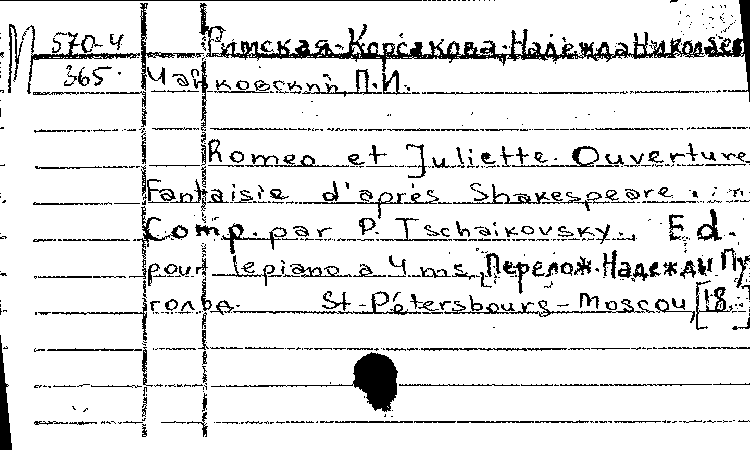 М 570-4 Римская-Корсакова, Надежда Николаев
365. Чайковский, П.И.
Romeo et Juliette. Ouverture
Fantaisie d'après Shakespeare.
Comp. par P. Tschaikovsky. Ed.
pour le piano a 4 ms, [Перелож. Надежды Пу
гольд. St-Pétersbourg-Moscou, [18..]